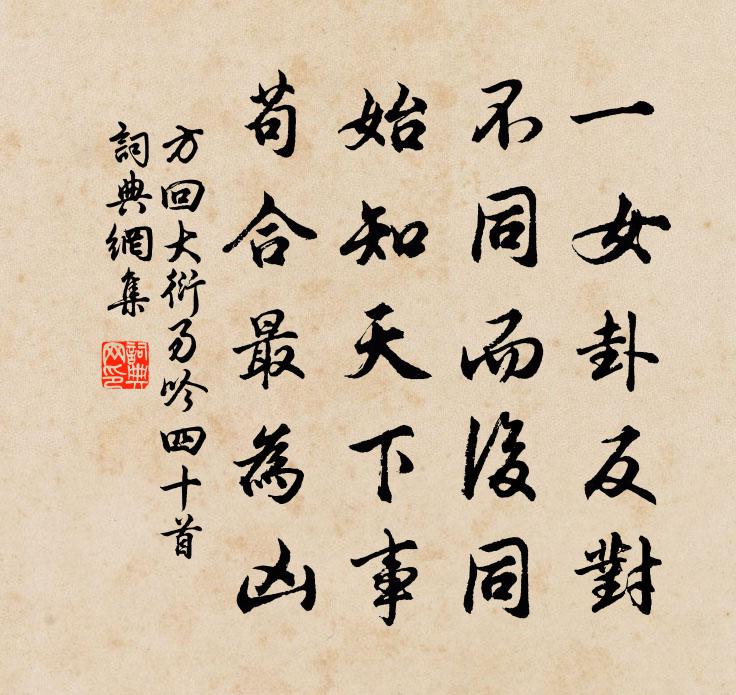 一女卦反對
不同而後同
始知天下事
苟合最為凶
方回大衍易吟四十首
詞典網集
詞典網印